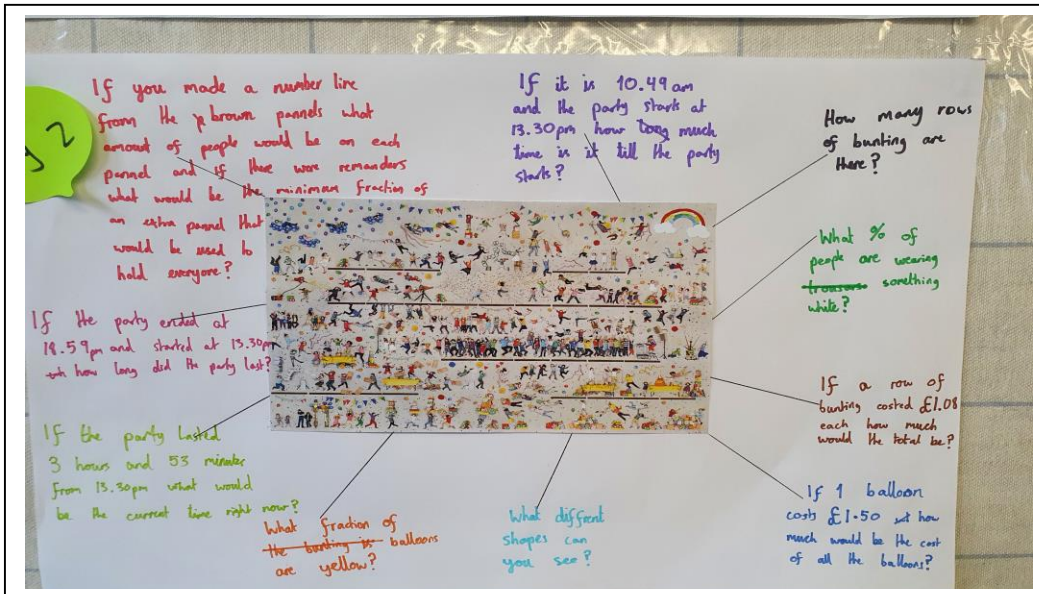 y 2
If you made a number line
from the brown pannels what
amount of people would be on each
pannel and if there were remanders
what would be the minimum fraction of
an extra pannel that
would be used to
hold everyone?
If it is 10.49 am
and the party starts at
13.30pm how long much
time is it till the party
starts?
How many rows
of bunting are
there?
What % of
people are wearing
trousers something
white?
If the party ended at
18.59pm and started at 13.30pm
how long did the party last?
If a row of
bunting costed £1.08
each how much
would the total be?
If the party lasted
3 hours and 53 minutes
from 13.30pm what would
be the current time right now?
What fraction of
the bunting is balloons
are yellow?
What diffrent
shapes can
you see?
If 1 balloon
costs £1.50 how
much would be the cost
of all the balloons?